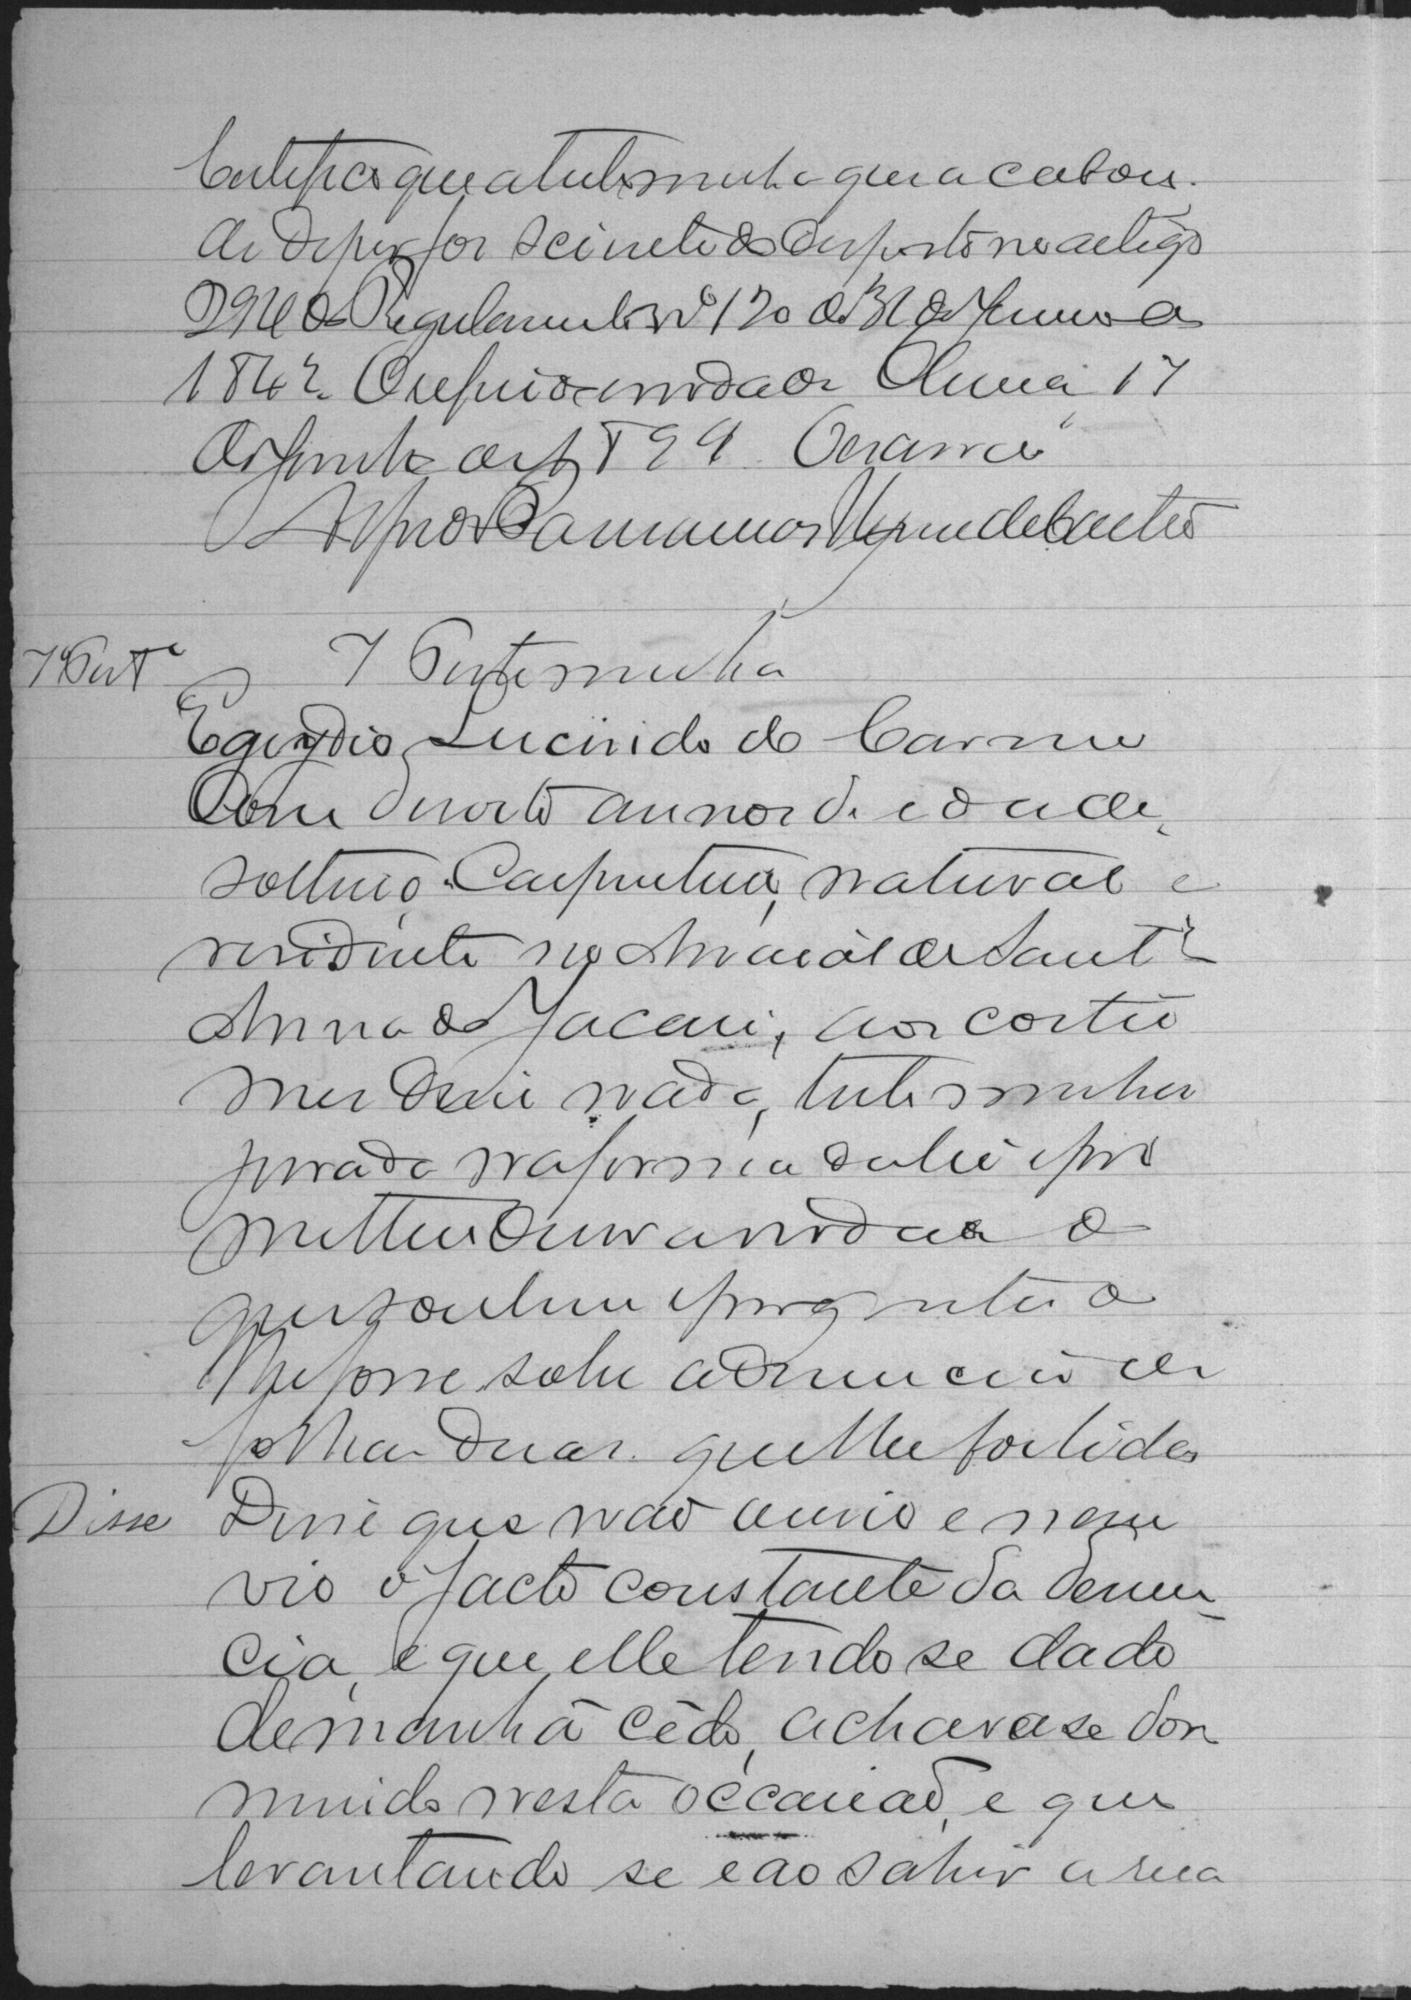 Certifico que a testemunha que acabou
de depor foi scinete do disposto no artigo
294 do Regulamento nº 120 de 31 de Janeiro de
1842. O referido e verdade 17
de Junho de 1899. O escrivão
7ª Test.ª
7ª Testemunha
Egydio Lucindo do Carmo
Com desoito annos de edade,
solteiro, Carpinteiro, natural e
residente no Arraial de Sant'
Anna do Jacaré, aos costu
mes disse nada, testemunha
jurada na forma da lei e pro
metteu diser a verdade do
que soubesse e perguntado
lhe fosse sobre a denuncia de
folhas duas que lhe foi lida
Disse
Disse que não ouvio e nem
vio o facto constante da denun
cia, e que elle tendo se dado
de manhã cêdo, achava se dor
mindo nesta occasião, e que
levantando se e ao sahir a rua